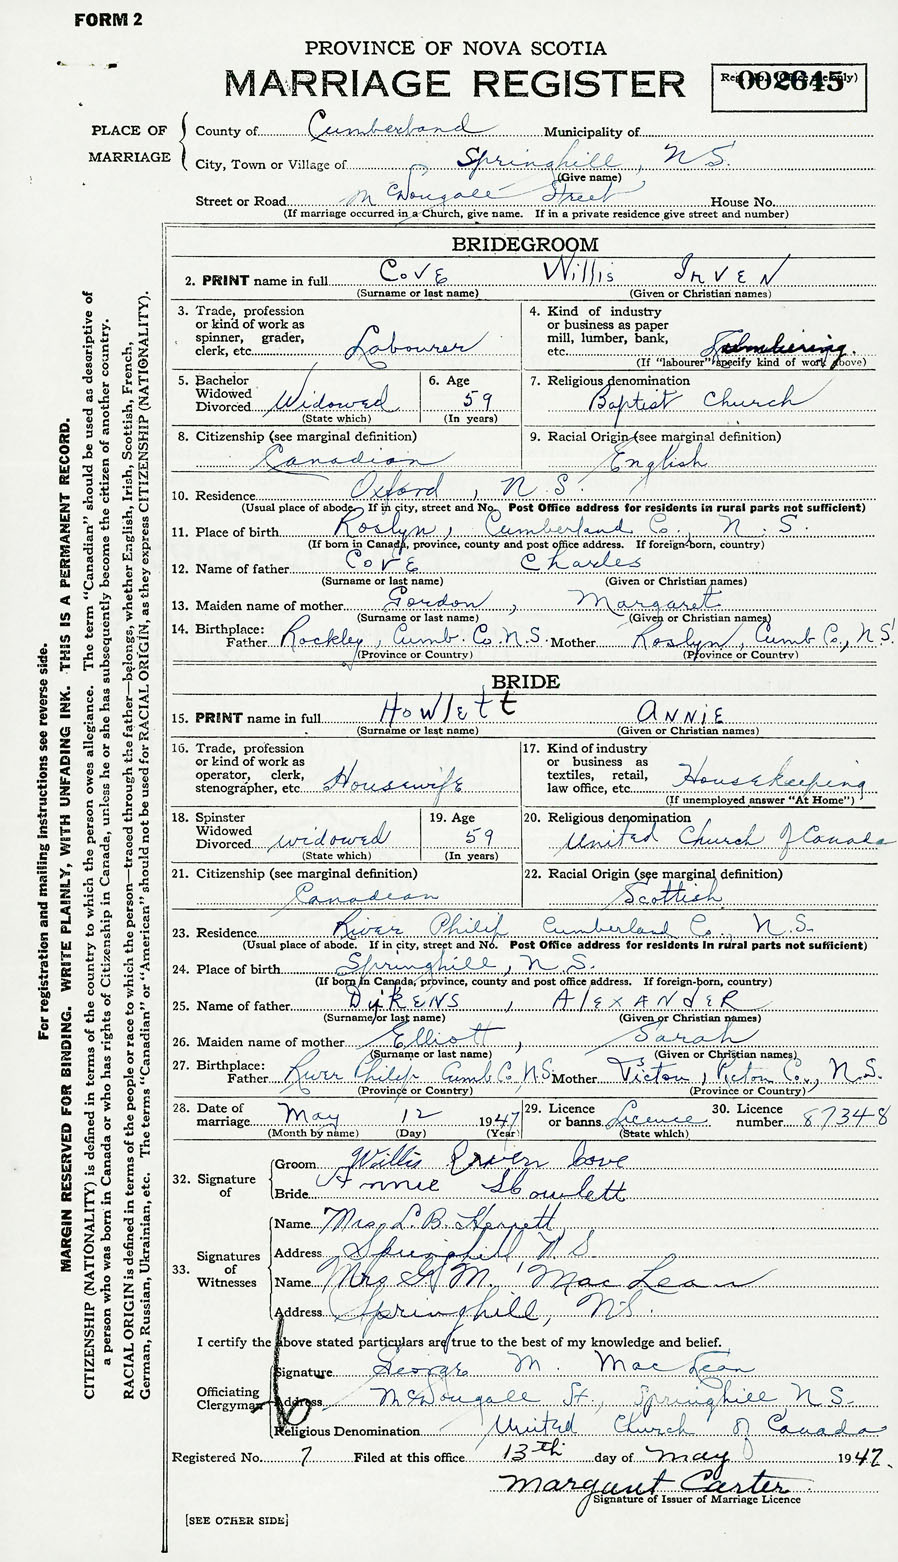 FORM 2
PROVINCE OF NOVA SCOTIA
MARRIAGE REGISTER
002645
PLACE OF MARRIAGE
County of Cumberland Municipality of
City, Town or Village of Springhill, N.S.
(Give name)
Street or Road McDougall Street House No.
(If marriage occurred in a Church, give name. If in a private residence give street and number)
BRIDEGROOM
2. PRINT name in full COVE Willis IRVEN
(Surname or last name) (Given or Christian names)
3. Trade, profession or kind of work as spinner, grader, clerk, etc. Labourer
4. Kind of industry or business as paper mill, lumber, bank, etc. Lumbering.
(If "labourer" specify kind of work above)
5. Bachelor Widowed Divorced Widowed
(State which)
6. Age 59
(In years)
7. Religious denomination Baptist Church
8. Citizenship (see marginal definition) Canadian
9. Racial Origin (see marginal definition) English
10. Residence Oxford, N.S.
(Usual place of abode. If in city, street and No. Post Office address for residents in rural parts not sufficient)
11. Place of birth Roslyn, Cumberland Co., N.S.
(If born in Canada, province, county and post office address. If foreign-born, country)
12. Name of father COVE Charles
(Surname or last name) (Given or Christian names)
13. Maiden name of mother Gordon, Margaret
(Surname or last name) (Given or Christian names)
14. Birthplace: Father Rockley, Cumb. Co. N.S. Mother Roslyn, Cumb Co., N.S.
(Province or Country) (Province or Country)
BRIDE
15. PRINT name in full Howlett ANNIE
(Surname or last name) (Given or Christian names)
16. Trade, profession or kind of work as operator, clerk, stenographer, etc Housewife
17. Kind of industry or business as textiles, retail, law office, etc. Housekeeping
(If unemployed answer "At Home")
18. Spinster Widowed Divorced widowed
(State which)
19. Age 59
(In years)
20. Religious denomination United Church of Canada
21. Citizenship (see marginal definition) Canadian
22. Racial Origin (see marginal definition) Scottish
23. Residence River Philip Cumberland Co., N.S.
(Usual place of abode. If in city, street and No. Post Office address for residents in rural parts not sufficient)
24. Place of birth Springhill, N.S.
(If born in Canada, province, county and post office address. If foreign-born, country)
25. Name of father DyKENS, AlExANdER
(Surname or last name) (Given or Christian names)
26. Maiden name of mother Elliott, Sarah
(Surname or last name) (Given or Christian names)
27. Birthplace: Father River Philip Cumb Co, N.S. Mother Pictou, Picton Co., N.S.
(Province or Country) (Province or Country)
28. Date of marriage May 12 1947
(Month by name) (Day) (Year)
29. Licence or banns Licence
(State which)
30. Licence number 87348
32. Signature of
Groom Willis Irven Cove
Bride Annie Howlett
33. Signatures of Witnesses
Name Mrs. L.B. Herrett
Address Springhill N.S.
Name Mrs G. M. MacLean
Address Springhill, N.S.
I certify the above stated particulars are true to the best of my knowledge and belief.
Officiating Clergyman
Signature George M. MacLean
Address McDougall St., Springhill N.S.
Religious Denomination United Church of Canada
Registered No. 7 Filed at this office 13th day of May 1947.
Margaret Carter
Signature of Issuer of Marriage Licence
[SEE OTHER SIDE]
For registration and mailing instructions see reverse side.
MARGIN RESERVED FOR BINDING. WRITE PLAINLY, WITH UNFADING INK. THIS IS A PERMANENT RECORD.
CITIZENSHIP (NATIONALITY) is defined in terms of the country to which the person owes allegiance. The term "Canadian" should be used as descriptive of
a person who was born in Canada or who has rights of Citizenship in Canada, unless he or she has subsequently become the citizen of another country.
RACIAL ORIGIN is defined in terms of the people or race to which the person—traced through the father—belongs, whether English, Irish, Scottish, French,
German, Russian, Ukrainian, etc. The terms "Canadian" or "American" should not be used for RACIAL ORIGIN, as they express CITIZENSHIP (NATIONALITY).